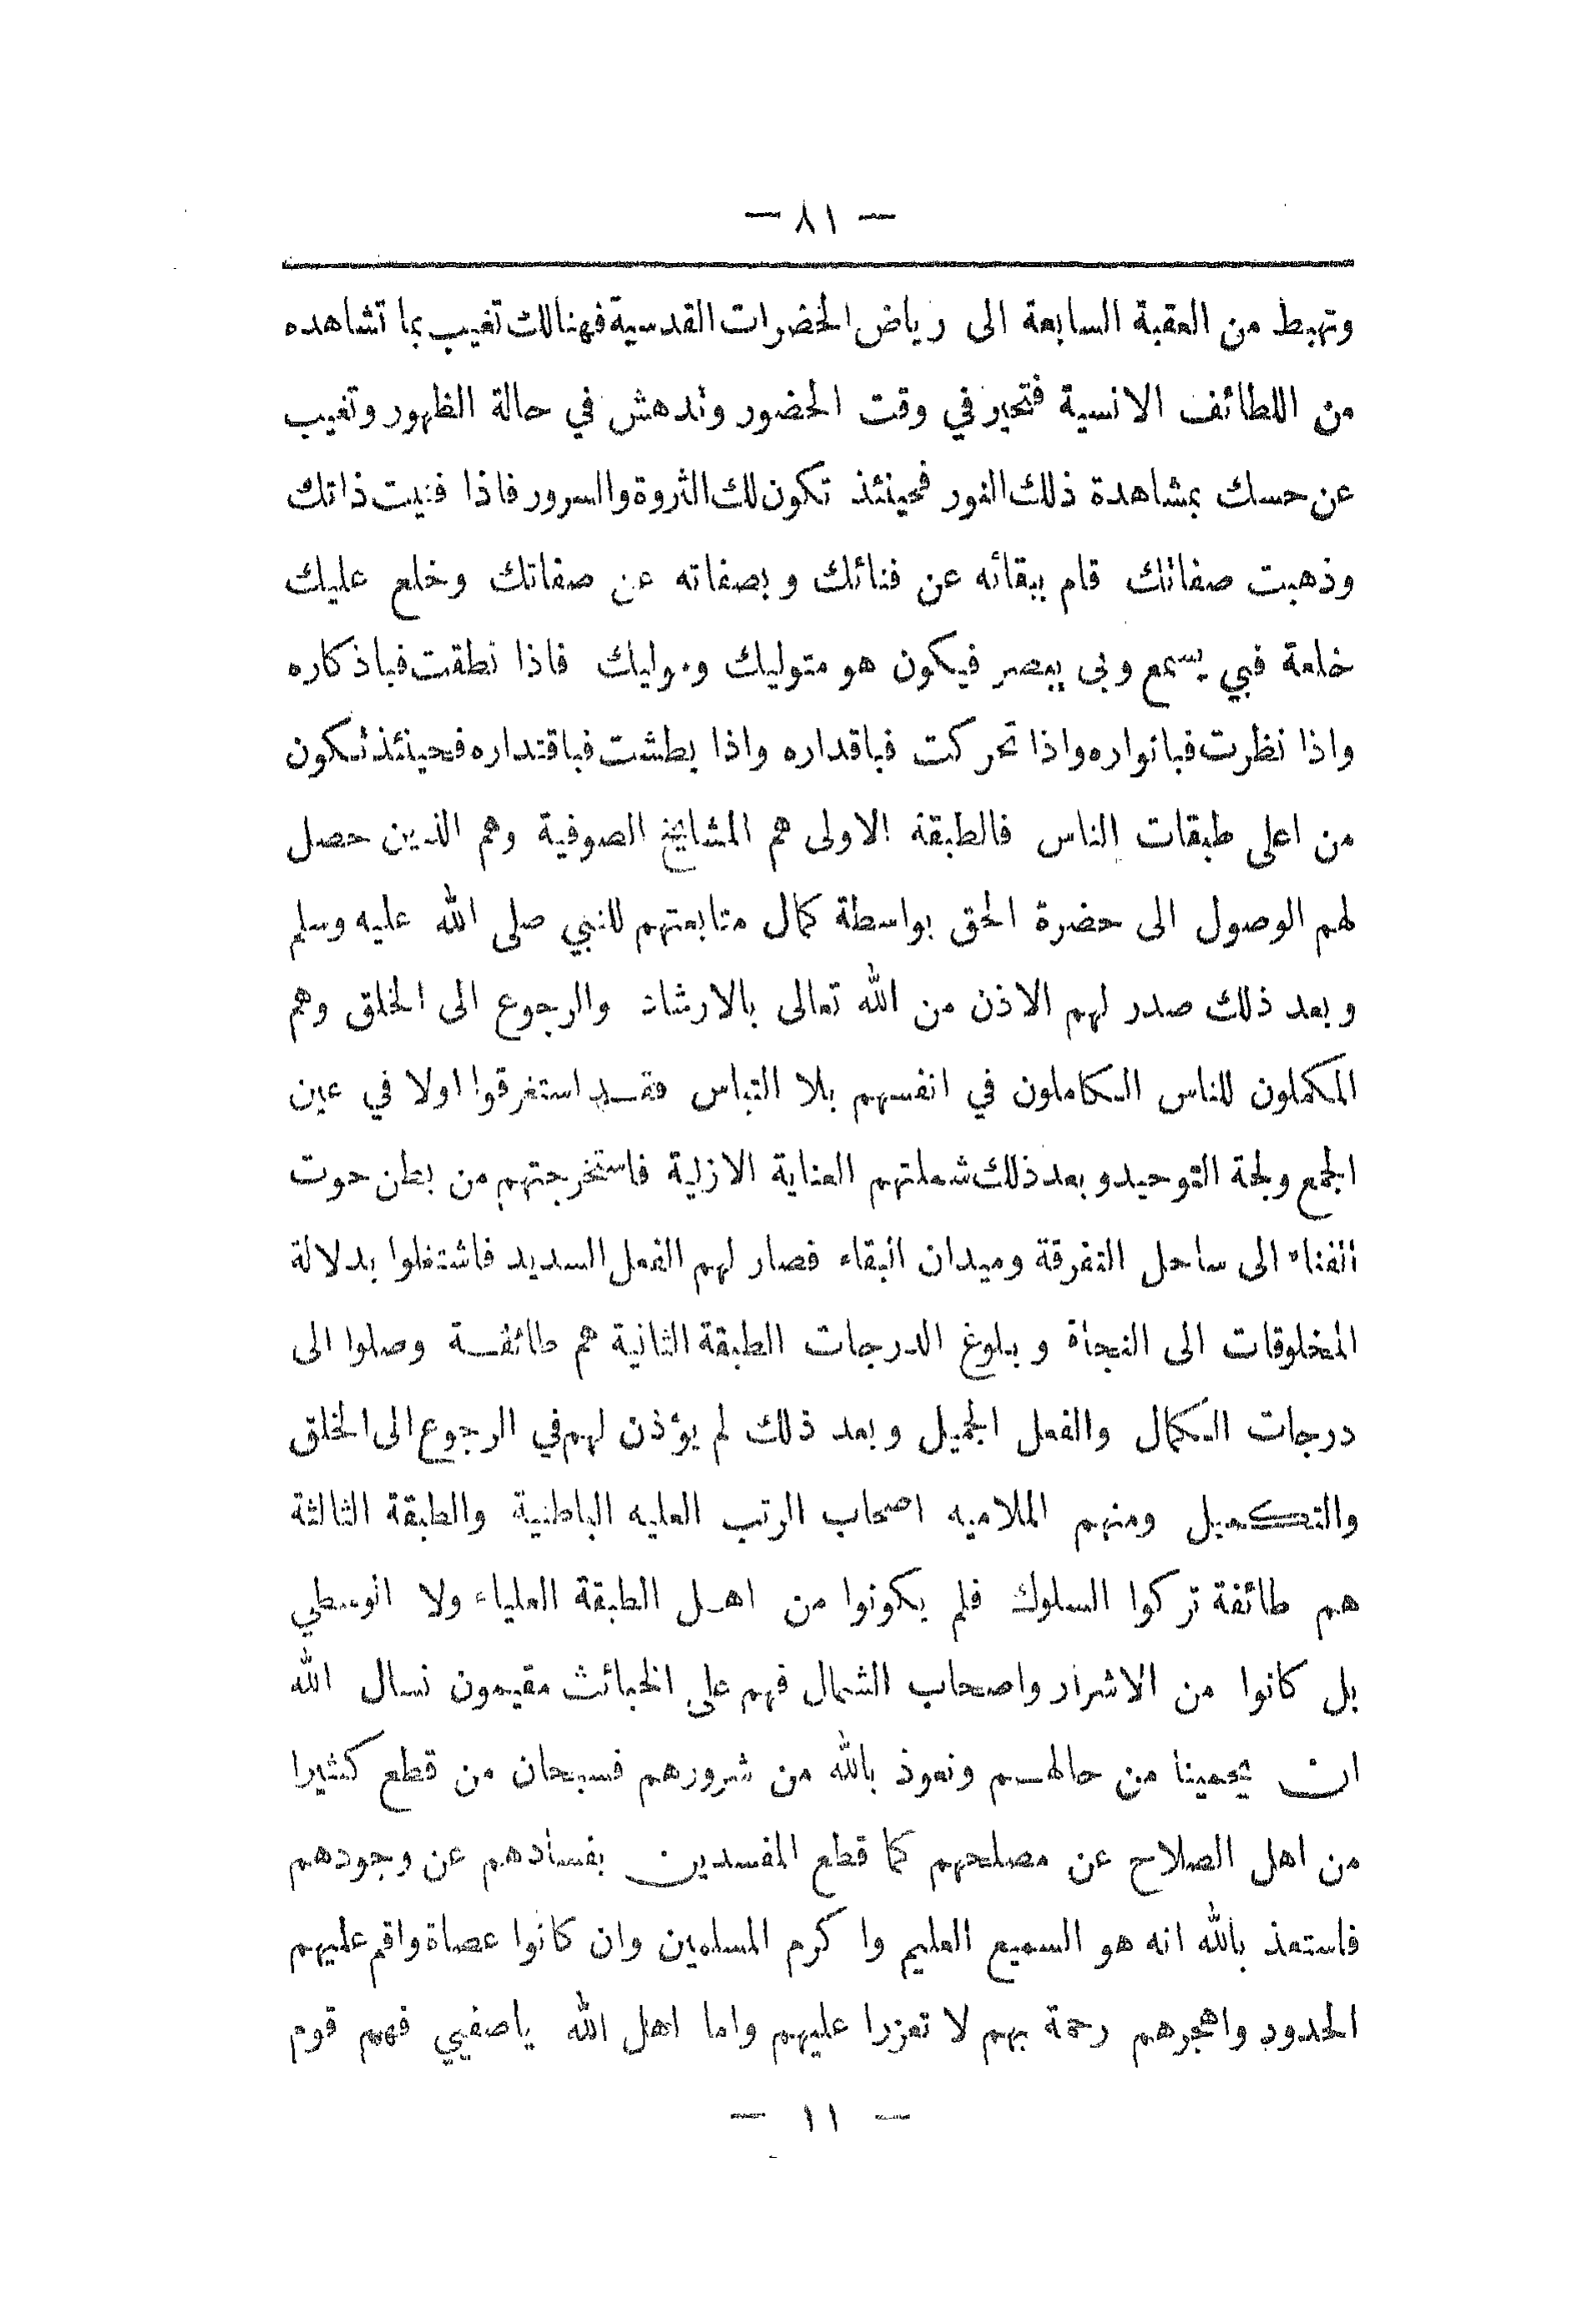 — ٨١ —
وتهبط من العقبة السابعة الى رياض الحضرات القدسية فهنالك تغيب بما تشاهده
من اللطائف الانسية فتحير في وقت الحضور وتدهش في حالة الظهور وتغيب
عن حسك بمشاهدة ذلك النور فحينئذ تكون لك الثروة والسرور فاذا فنيت ذاتك
وذهبت صفاتك قام ببقائه عن فنائك وبصفاته عن صفاتك وخلع عليك
خلعة فبي يسمع وبى يبصر فيكون هو متوليك ومواليك فاذا نطقت فباذكاره
واذا نظرت فبانواره واذا تحركت فباقداره واذا بطشت فباقتداره فحينئذ تكون
من اعلى طبقات الناس فالطبقة الاولى هم المشايخ الصوفية وهم الذين حصل
لهم الوصول الى حضرة الحق بواسطة كمال متابعتهم للنبي صلى الله عليه وسلم
وبعد ذلك صدر لهم الاذن من الله تعالى بالارشاد والرجوع الى الخلق وهم
المكملون للناس الكاملون في انفسهم بلا التباس فقد استغرقوا اولا في عين
الجمع ولجة التوحيد وبعد ذلك شملتهم العناية الازلية فاستخرجتهم من بطن حوت
الفناء الى ساحل التفرقة وميدان البقاء فصار لهم الفعل السديد فاشتغلوا بدلالة
المخلوقات الى النجاة وبلوغ الدرجات الطبقة الثانية هم طائفة وصلوا الى
درجات الكمال والفعل الجميل وبعد ذلك لم يؤذن لهم في الرجوع الى الخلق
والتكميل ومنهم الملاميه اصحاب الرتب العليه الباطنية والطبقة الثالثة
هم طائفة تركوا السلوك فلم يكونوا من اهل الطبقة العلياء ولا الوسطي
بل كانوا من الاشرار واصحاب الشمال فهم على الخبائث مقيمون نسال الله
ان يحمينا من حالهم ونعوذ بالله من شرورهم فسبحان من قطع كثيرا
من اهل الصلاح عن مصلحهم كما قطع المفسدين بفسادهم عن وجودهم
فاستعذ بالله انه هو السميع العليم واكرم المسلمين وان كانوا عصاة واقم عليهم
الحدود واهجرهم رحمة بهم لا تعززا عليهم واما اهل الله ياصفيي فهم قوم
— ١١ —